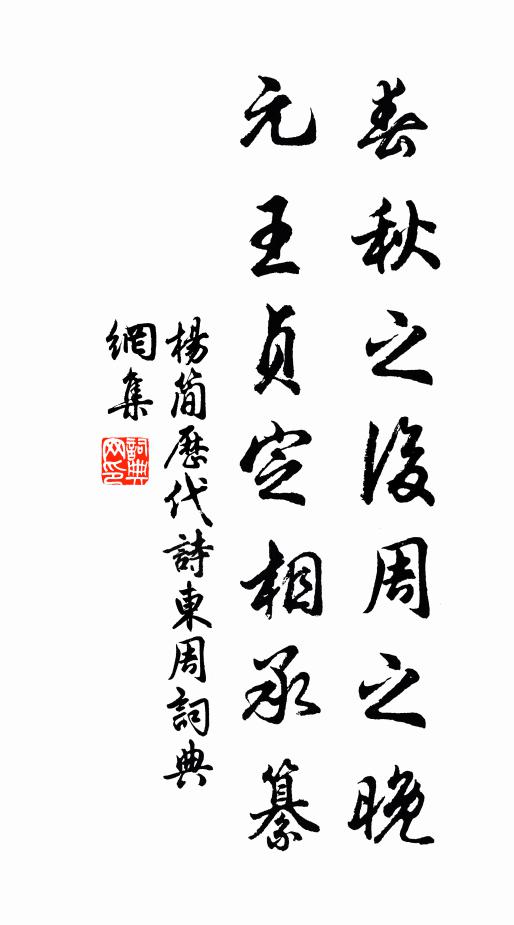 春秋之後周之晚
元王貞定相承纂
楊簡歷代詩東周詞典
網集
詞典
网印